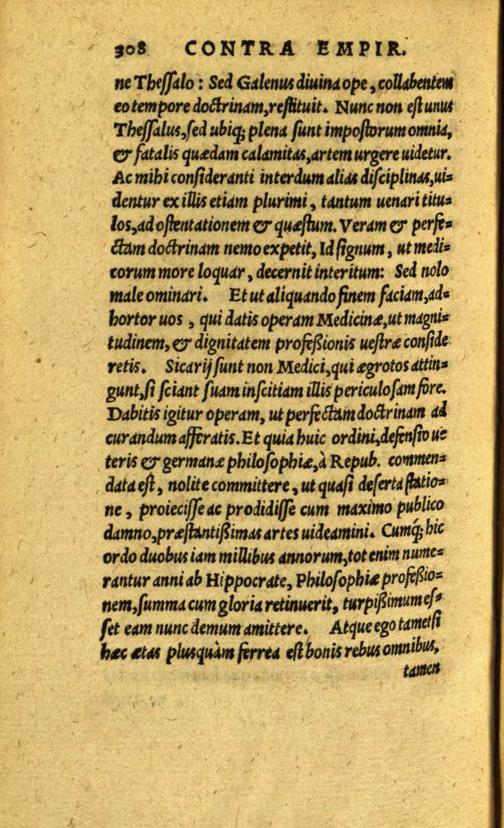 308 CONTRA EMPIR.
ne Theſſalo : Sed Galenus diuina ope, collabentem
eo tempore doctrinam, reſtituit. Nunc non eſt unus
Theſſalus, ſed ubiq; plena ſunt impoſtorum omnia,
& fatalis quædam calamitas, artem urgere uidetur.
Ac mihi conſideranti interdum alias diſciplinas, ui-
dentur ex illis etiam plurimi, tantum uenari titu-
los, ad oſtentationem & quæſtum. Veram & perfe-
ctam doctrinam nemo expetit, Id ſignum, ut medi-
corum more loquar, decernit interitum: Sed nolo
male ominari. Et ut aliquando finem faciam, ad-
hortor uos, qui datis operam Medicinæ, ut magni-
tudinem, & dignitatem profeßionis ueſtræ conſide
retis. Sicarij ſunt non Medici, qui ægrotos attin-
gunt, ſi ſciant ſuam inſcitiam illis periculoſam fore.
Dabitis igitur operam, ut perfectam doctrinam ad
curandum afferatis. Et quia huic ordini, defenſio ue
teris & germanæ philoſophiæ, à Repub. commen-
data eſt, nolite committere, ut quaſi deſerta ſtatio-
ne, proieciſſe ac prodidiſſe cum maximo publico
damno, præſtantißimas artes uideamini. Cumq́; hic
ordo duobus iam millibus annorum, tot enim nume-
rantur anni ab Hippocrate, Philoſophiæ profeßio-
nem, ſumma cum gloria retinuerit, turpißimum eſ-
ſet eam nunc demum amittere. Atque ego tametſi
hæc ætas plusquàm ferrea eſt bonis rebus omnibus,
tamen